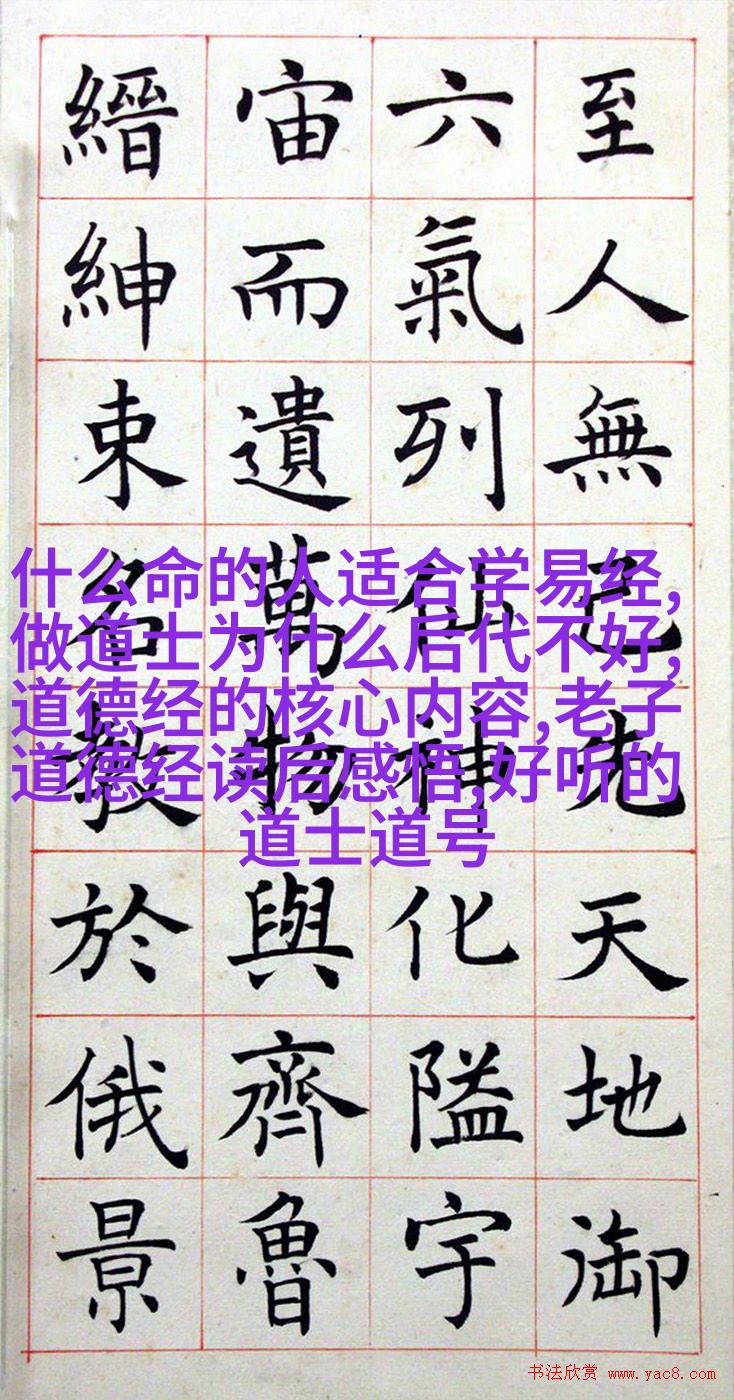 至人無己先天地御
六氣列仙神化隘宇
宙而遺萬物與齊魯
縉紳束名教於俄景
什么命的人适合学易经,
做道士为什么后代不好,
道德经的核心内容,老子
道德经读后感悟,好听的
道士道号
书法欣赏 www.yac8.com